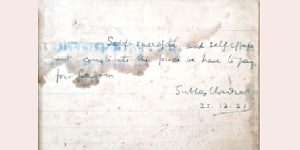 Self sacrifice and self efface
ment constitute the price we have to pay
for
Subhas Chandra
25.12.21